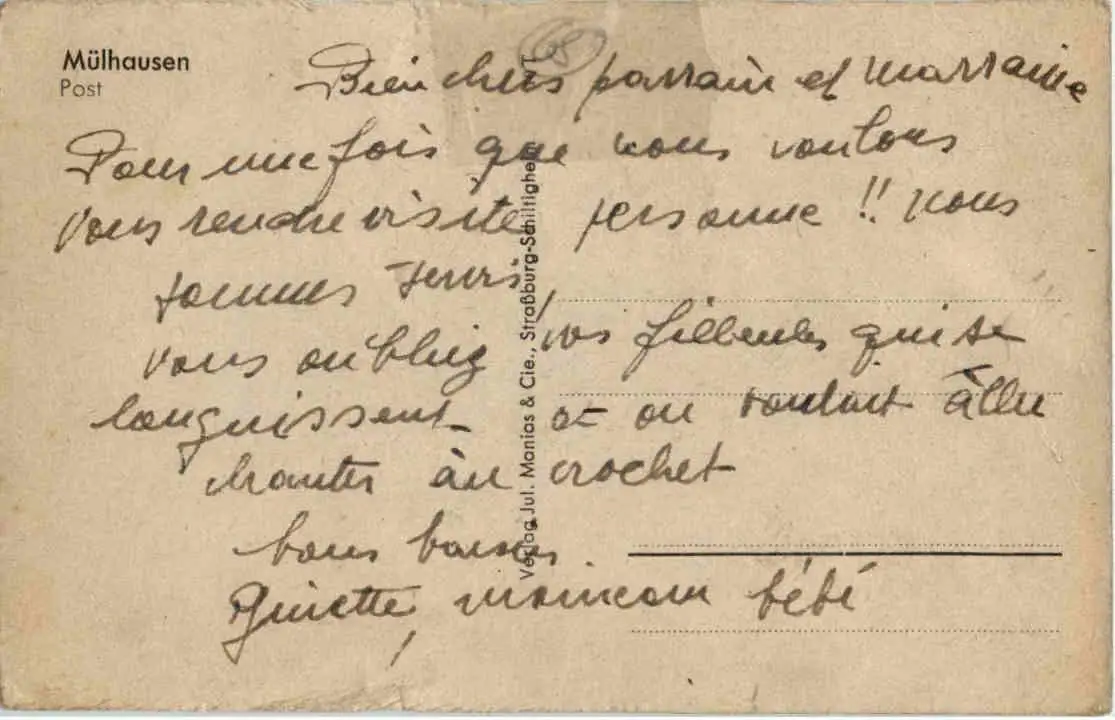 Mülhausen
Post
68
Bien chers parrain et marraine
Pour une fois que nous voulons
vous rendre visite personne !! nous
sommes
vous oubliez vos filleules qui se
languissent et on voulait âller
chanter âu crochet
bons baisers
Ginette, bébé
Verlag Jul. Manias & Cie., Straßburg-Schiltigheim